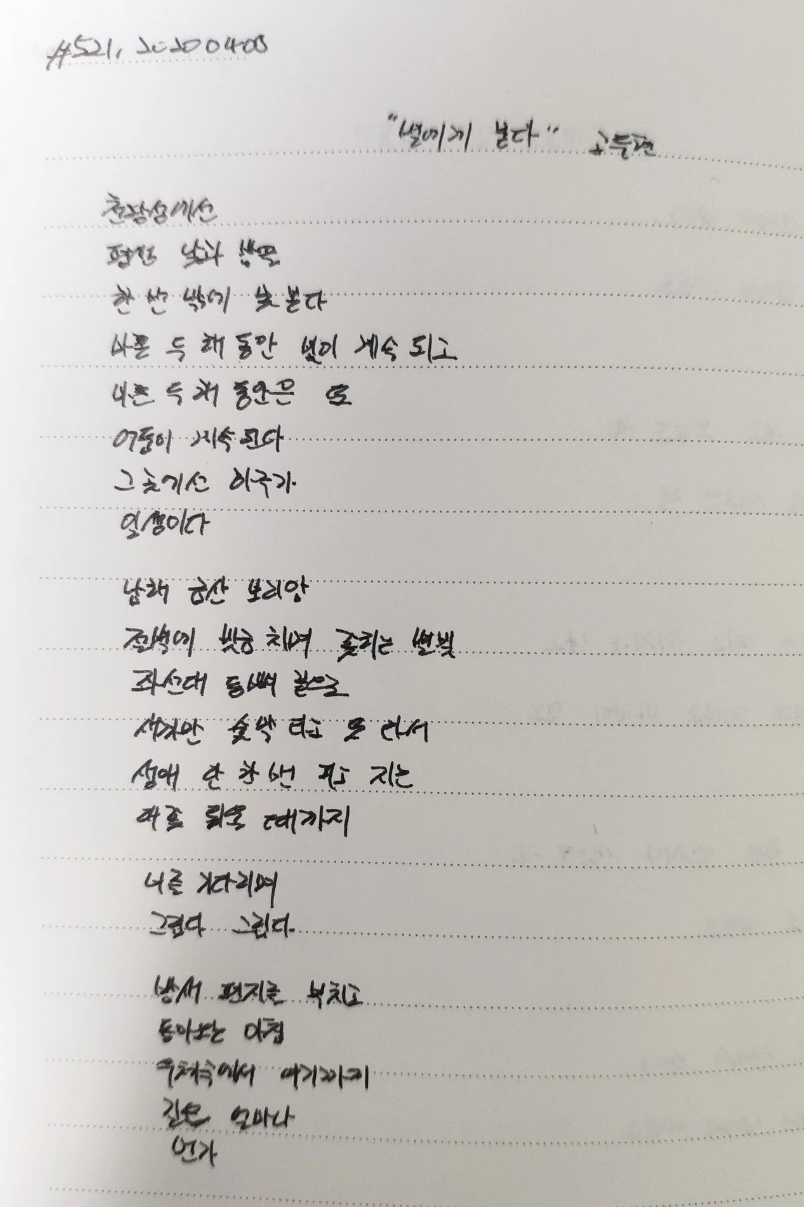 #521, 20200408
"별에게 묻다" 고두현
천왕성에선
평생 낮과 밤을
한 번 밖에 못 본다
마흔 두 해 동안 빛이 계속 되고
마흔 두 해 동안은 또
어둠이 계속 된다
그 곳에선 하루가
일생이다
남해 금산 보리암
절벽에 빗금 치며 꽂히는 별빛
좌선대 등뼈 끝으로
새까만 숯막 타고 또 타서
생애 단 한 번 피고 지는
대꽃 틔울 때까지
너를 기다리며
그립다 그립다
밤새 편지를 부치고
돌아오는 아침
우체국에서 여기까지
길은 얼마나
먼가